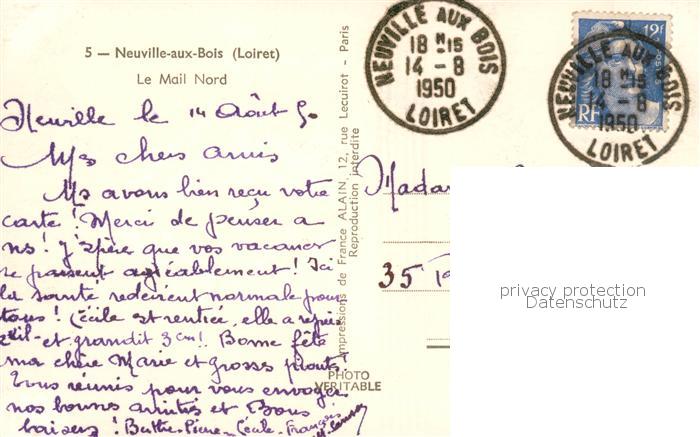 5 — Neuville-aux-Bois (Loiret)
Le Mail Nord
Neuville le 14 Août 50
Mes chers amis
Ns avons bien reçu votre
carte! Merci de penser a
ns! J'espère que vos vacances
se passent agréablement! Ici
la santé redevient normale pour
tous! Cécile est rentrée, elle a repris
et grandit 3 cm! Bonne fête
ma chère Marie et grosses
Tous réunis pour vous envoyer
nos bonnes amitiés et Bons
baisers! Berthe-Pierre-Cécile-François
Impressions de France ALAIN, 12, rue Lecuirot - Paris
Reproduction interdite
PHOTO
VERITABLE
NEUVILLE AUX BOIS
18 H 15
14 - 8
1950
LOIRET
12f
RF
NEUVILLE AUX BOIS
18 H 15
14 - 8
1950
LOIRET
Madam
35
privacy protection
Datenschutz